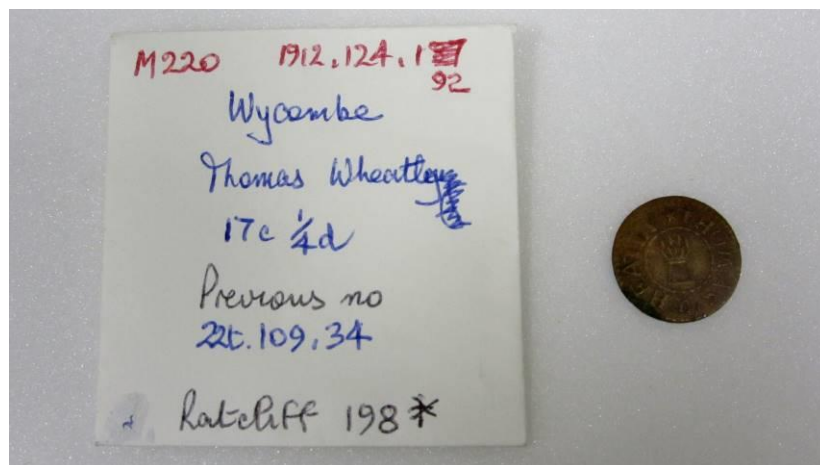 M220 1912.124.1
92
Wycombe
Thomas Wheatley
17c 1/4d
Previous no
22t.109.34
Ratcliff 198*